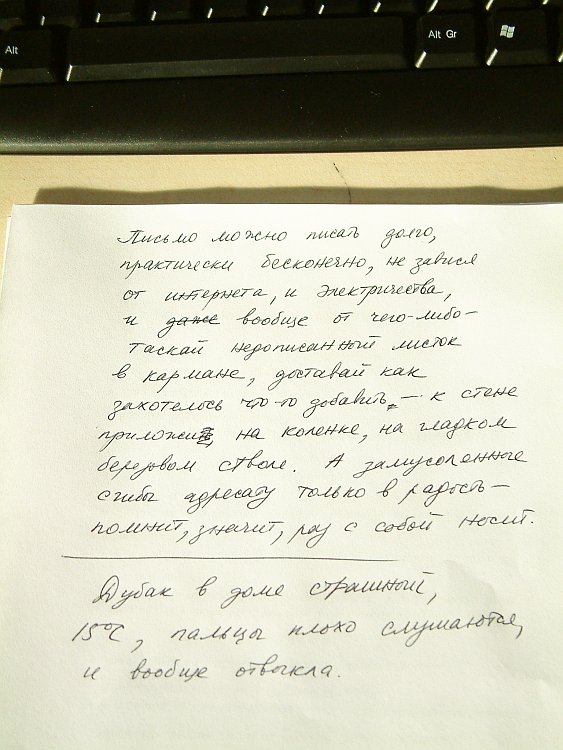 Alt
Alt Gr
Письмо можно писать долго,
практически бесконечно, не завися
от интернета, и электричества,
и даже вообще от чего-либо -
таскай недописанный листок
в кармане, доставай как
захотелось что-то добавить, - к стене
приложи, на коленке, на гладком
березовом стволе. А замусоленные
сгибы адресату только в радость -
помнит, значит, раз с собой носит.
Дубак в доме страшный,
15°C, пальцы плохо слушаются,
и вообще отвыкла.